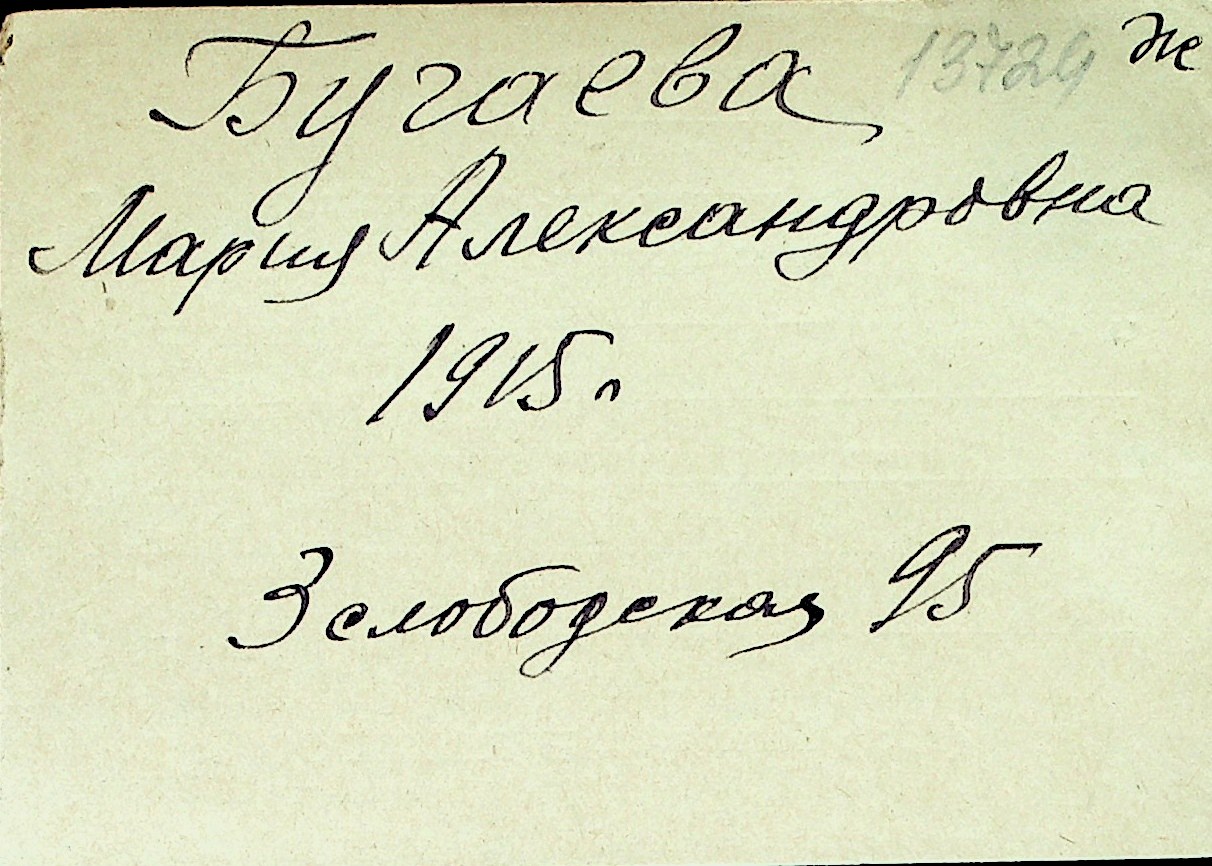 Бугаева 13724 ж
Мария Александровна
1915 г
3 слободская 95